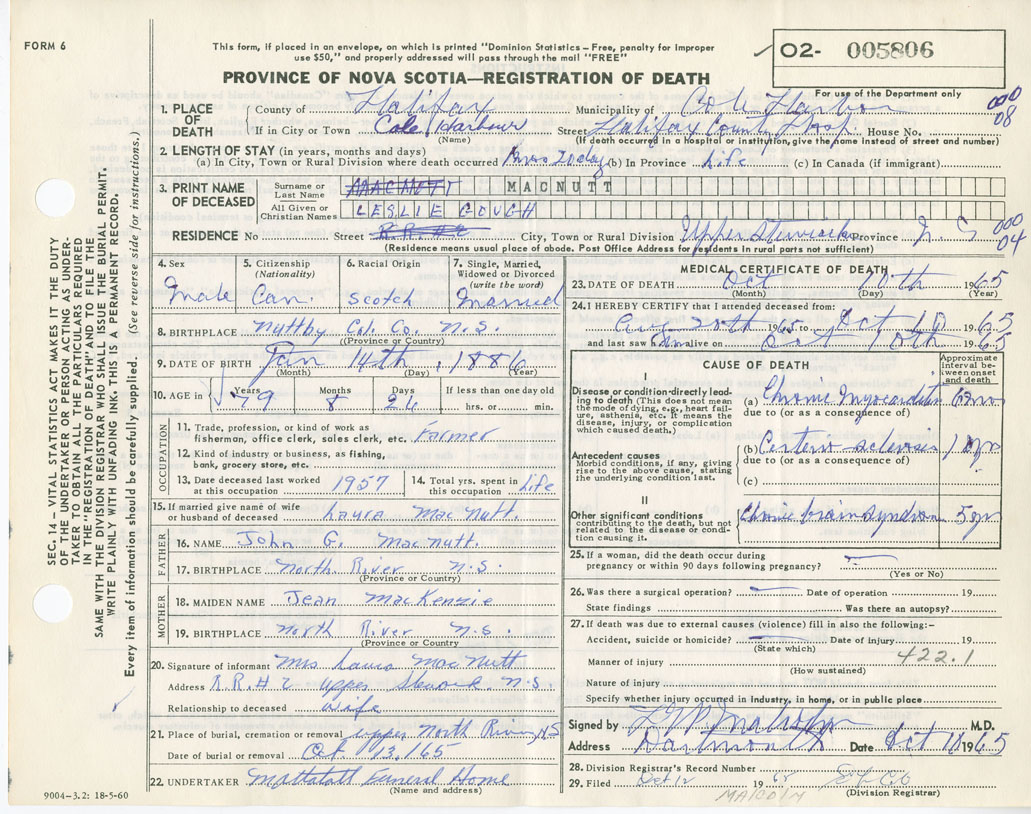 FORM 6
This form, if placed in an envelope, on which is printed "Dominion Statistics – Free, penalty for improper
use $50," and properly addressed will pass through the mail "FREE"
PROVINCE OF NOVA SCOTIA—REGISTRATION OF DEATH
02- 005806
For use of the Department only
000
08
1. PLACE OF DEATH
County of Halifax Municipality of Cole Harbor
If in City or Town Cole Harbour Street Halifax County Hosp. House No.
(Name) (If death occurred in a hospital or institution, give the name instead of street and number)
2. LENGTH OF STAY (in years, months and days)
(a) In City, Town or Rural Division where death occurred (b) In Province Life (c) In Canada (if immigrant)
3. PRINT NAME OF DECEASED
Surname or Last Name MACNUTT MACNUTT
All Given or Christian Names LESLIE GOUGH
RESIDENCE No Street City, Town or Rural Division Upper Stewiacke Province N.S 000
04
(Residence means usual place of abode. Post Office Address for residents in rural parts not sufficient)
4. Sex
Male
5. Citizenship
(Nationality)
Can.
6. Racial Origin
Scotch
7. Single, Married, Widowed or Divorced
(write the word)
Married
8. BIRTHPLACE Nuttby Col. Co. N.S.
(Province or Country)
9. DATE OF BIRTH Jan 14th, 1886
(Month) (Day) (Year)
10. AGE in
Years 79 Months 8 Days 26 If less than one day old
hrs. or min.
OCCUPATION
11. Trade, profession, or kind of work as
fisherman, office clerk, sales clerk, etc. Farmer
12. Kind of industry or business, as fishing,
bank, grocery store, etc.
13. Date deceased last worked
at this occupation 1957
14. Total yrs. spent in
this occupation Life
15. If married give name of wife
or husband of deceased Laura MacNutt.
FATHER
16. NAME John G. MacNutt.
17. BIRTHPLACE North River N.S.
(Province or Country)
MOTHER
18. MAIDEN NAME Jean MacKenzie
19. BIRTHPLACE North River N.S.
(Province or Country)
20. Signature of informant Mrs Laura MacNutt
Address R.R.# 2 Upper N.S
Relationship to deceased wife
21. Place of burial, cremation or removal Upper North River, NS
Date of burial or removal Oct 13, 165
22. UNDERTAKER Mattatall Funeral Home
(Name and address)
9004–3.2: 18-5-60
MEDICAL CERTIFICATE OF DEATH
23. DATE OF DEATH Oct 10th 1965
(Month) (Day) (Year)
24. I HEREBY CERTIFY that I attended deceased from:
Aug 20th 1965 to Oct 10 1965
and last saw him alive on Oct 10th 1965
CAUSE OF DEATH
Approximate interval between onset and death
I
Disease or condition directly leading to death (This does not mean
the mode of dying, e.g., heart failure, asthenia, etc. It means the
disease, injury, or complication which caused death.)
(a) Chronic Myocarditis 6 mo
due to (or as a consequence of)
Antecedent causes
Morbid conditions, if any, giving
rise to the above cause, stating
the underlying condition last.
(b) 10 yr
due to (or as a consequence of)
(c)
II
Other significant conditions
contributing to the death, but not
related to the disease or condition causing it.
Chronic brain syndrom 5 yr
25. If a woman, did the death occur during
pregnancy or within 90 days following pregnancy?
(Yes or No)
26. Was there a surgical operation? Date of operation 19
State findings Was there an autopsy?
27. If death was due to external causes (violence) fill in also the following:–
Accident, suicide or homicide? Date of injury 19
(State which) 422.1
Manner of injury
(How sustained)
Nature of injury
Specify whether injury occurred in industry, in home, or in public place
Signed by M.D.
Address Dartmouth Date Oct 11 1965
28. Division Registrar's Record Number
29. Filed Oct 12 1965
(Division Registrar)
SEC. 14 – VITAL STATISTICS ACT MAKES IT THE DUTY
OF THE UNDERTAKER OR PERSON ACTING AS UNDERTAKER TO OBTAIN ALL THE PARTICULARS REQUIRED
IN THE "REGISTRATION OF DEATH" AND TO FILE THE
SAME WITH THE DIVISION REGISTRAR WHO SHALL ISSUE THE BURIAL PERMIT.
WRITE PLAINLY WITH UNFADING INK. THIS IS A PERMANENT RECORD.
Every item of information should be carefully supplied. (See reverse side for instructions.)